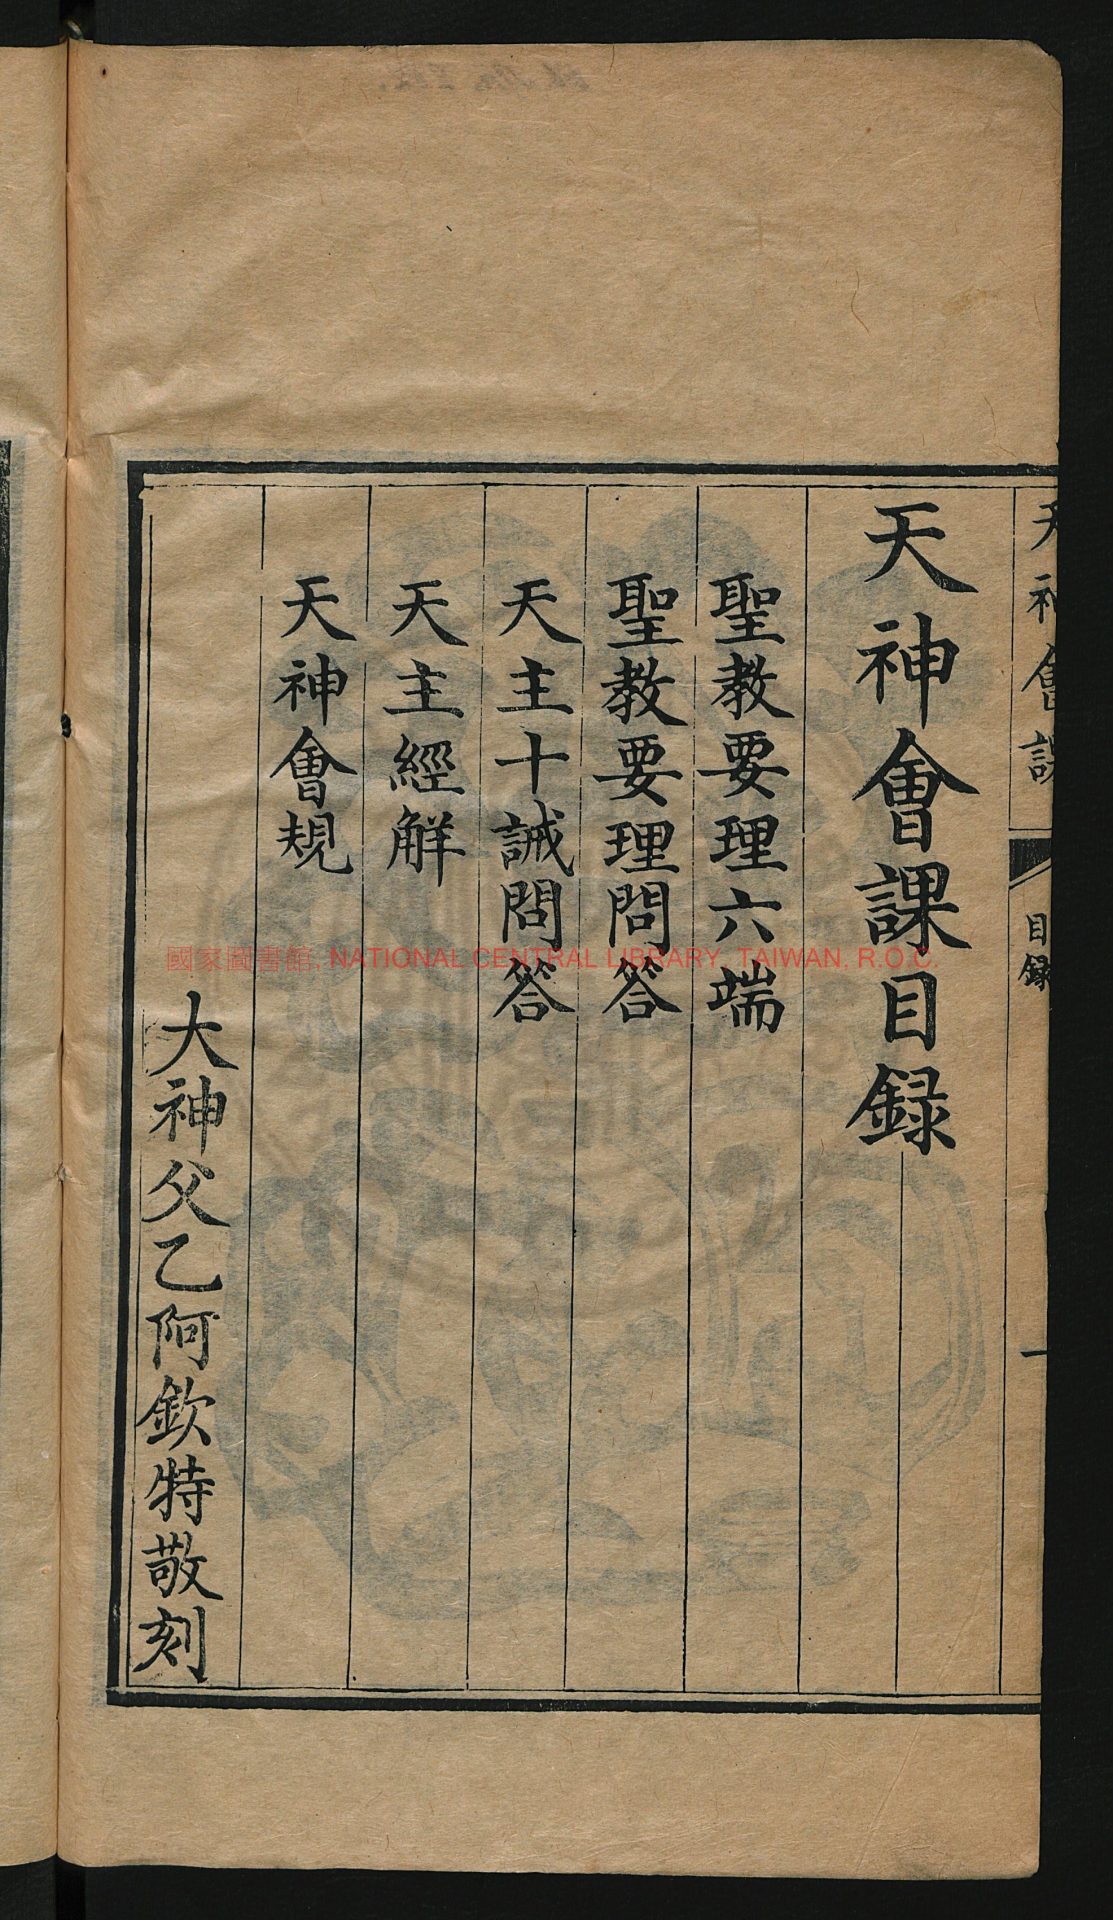 天神會課
目録
一
天神會課目録
聖教要理六端
聖教要理問答
天主十誡問答
天主經解
天神會規
大神父乙阿欽特敬刻
國家圖書館, NATIONAL CENTRAL LIBRARY, TAIWAN. R.O.C.